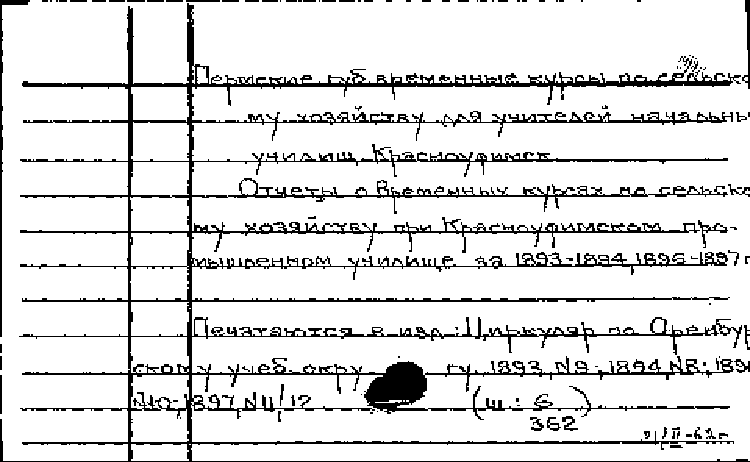 Пермские губ временные курсы по сельско
му хозяйству для учителей начальны
училищ, Красноуфимск
Отчеты о временных курсах по сельско
му хозяйству при Красноуфимском про-
мышленном училище за 1893-1894, 1896-1897 г
Печатаются в изд.: Циркуляр по Оренбур
скому учеб. окру гу, 1893, №9; 1894, №8; 189
№10; 1897, №11/12 (ш: 6
362)